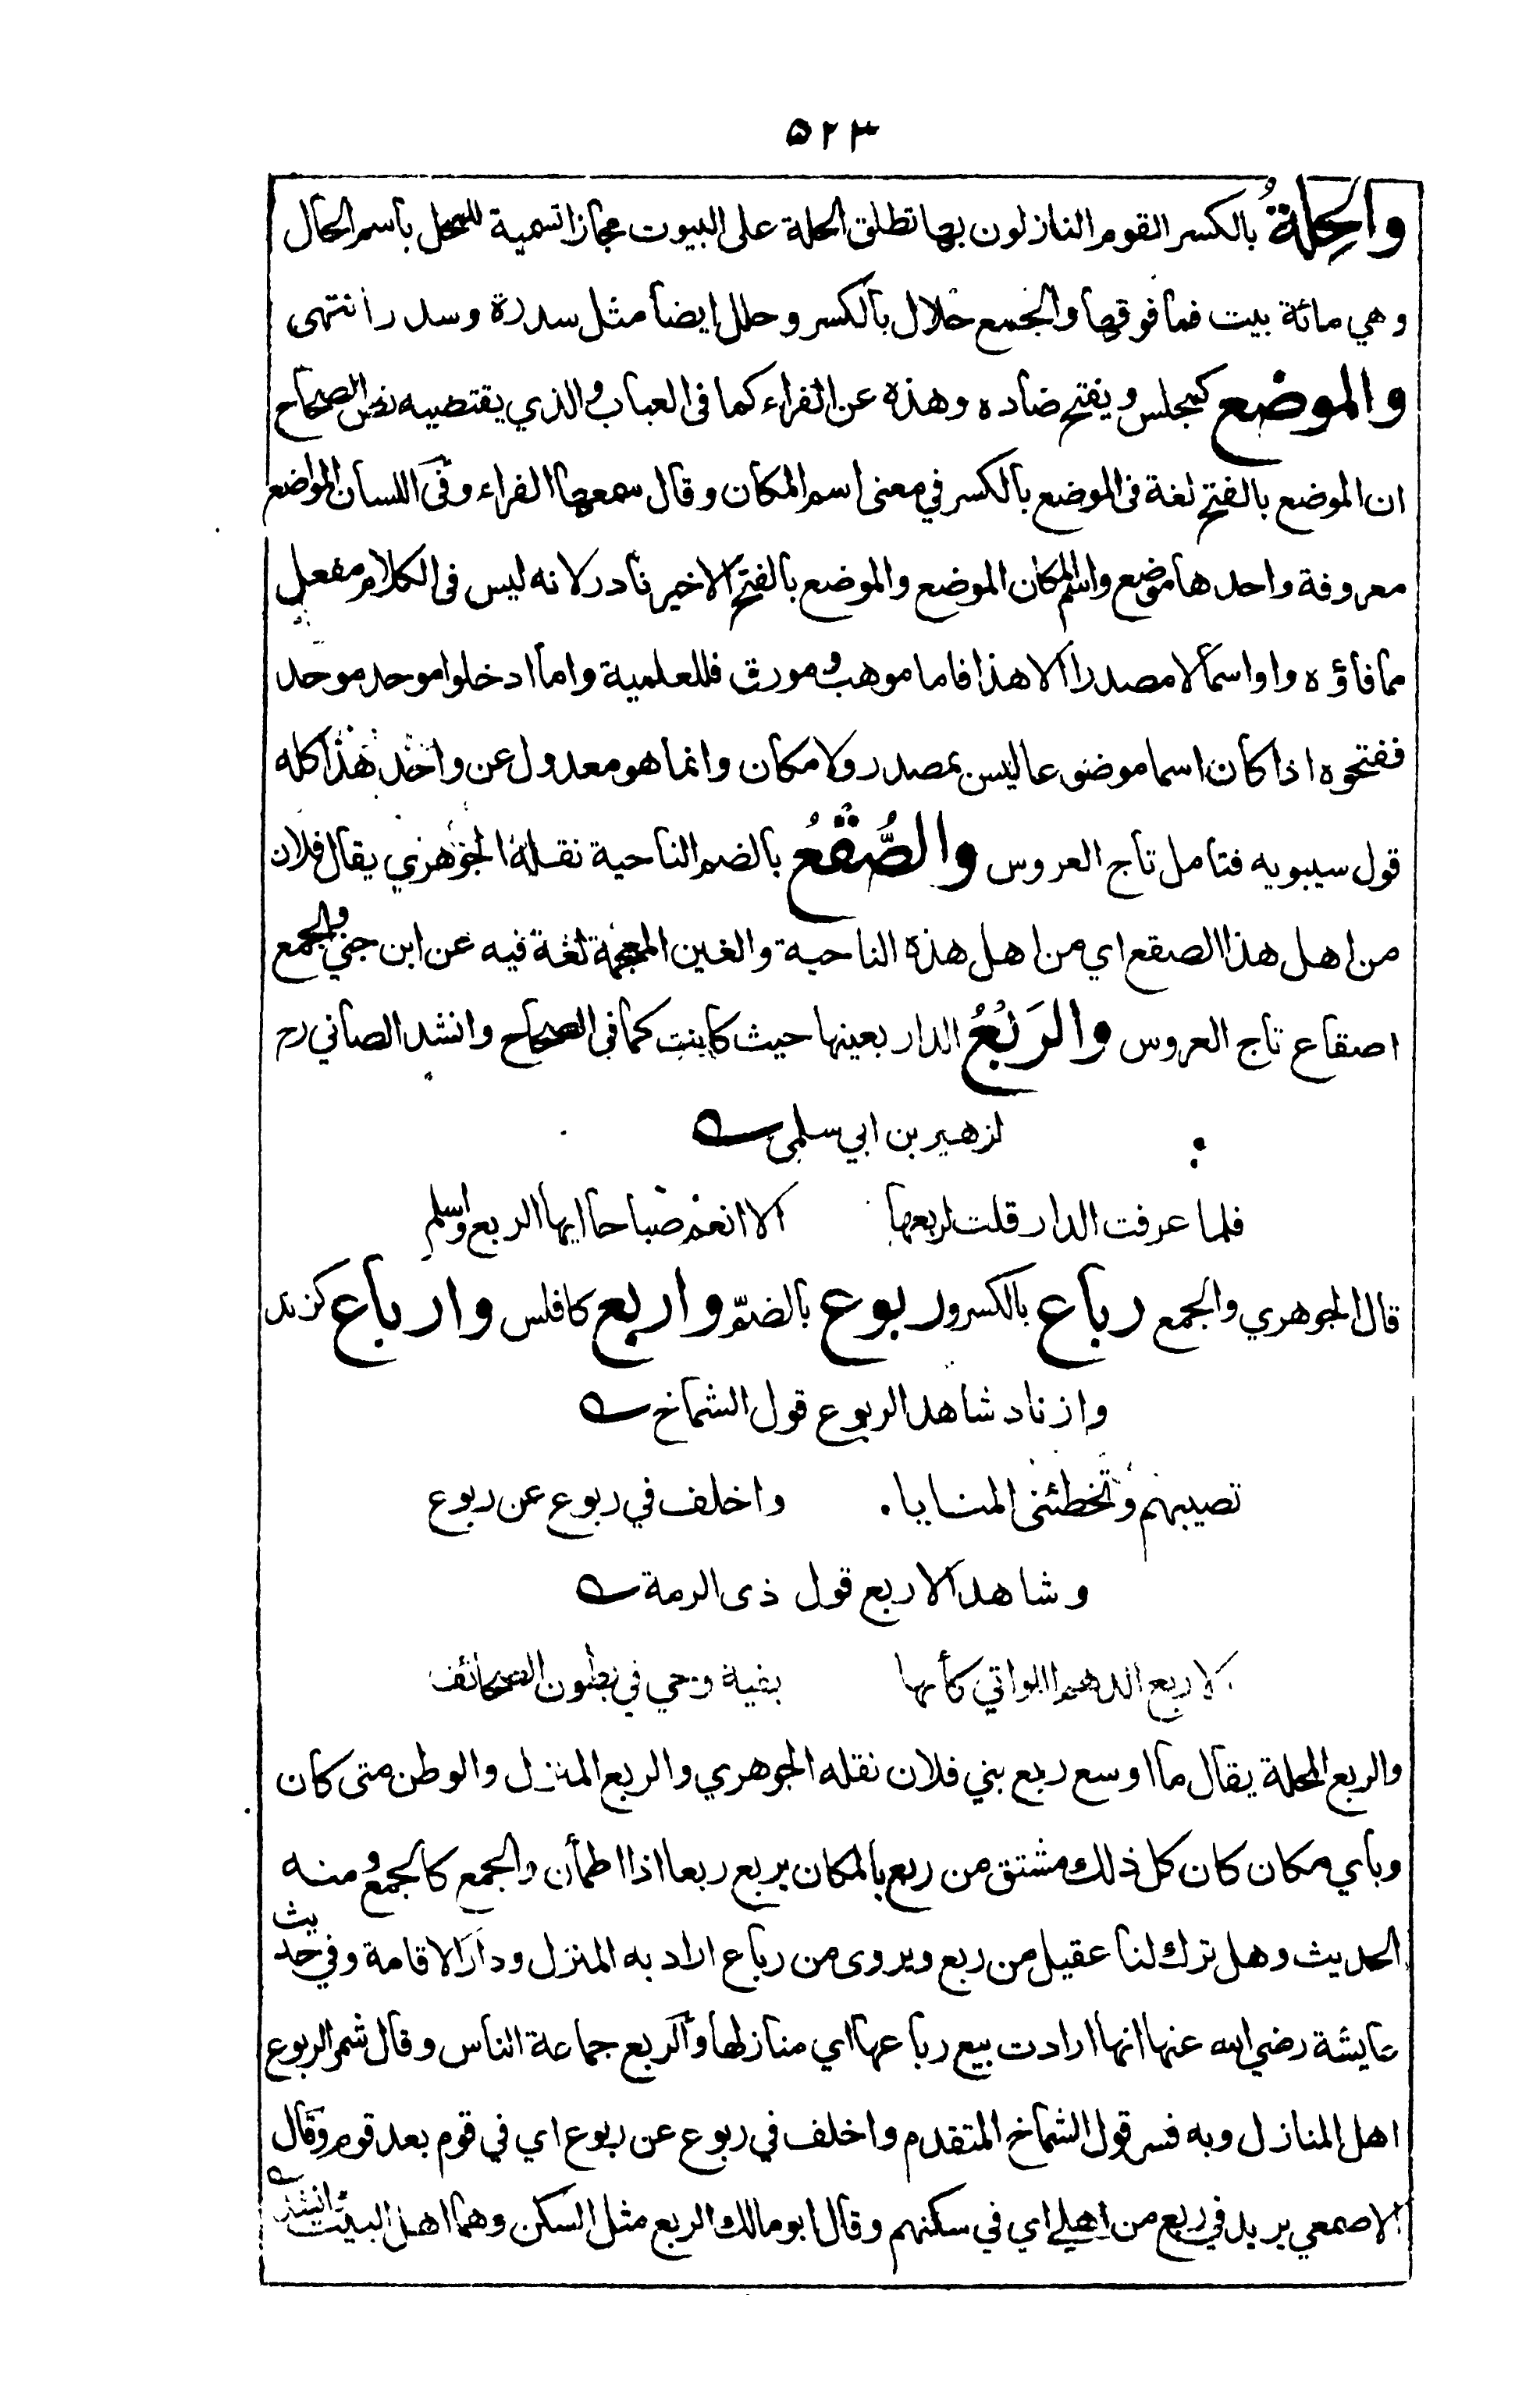 ۵۲۳
والحِلةُ بالكسر القوم النازلون بها تطلق الحلة على البيوت مجازا تسمية للمحل باسم الحال
وهي مائة بيت فما فوقها والجمع حلال بالكسر وحلل ايضا مثل سدرة وسدر انتهى
والموضع كمجلس ويفتح ضاده وهذه عن الفراء كما فى العباب والذي يقتضيه نص الصحاح
ان الموضع بالفتح لغة فى الموضع بالكسر في معنى اسم المكان وقال سمعها الفراء وفى اللسان المواضع
معروفة واحدها موضع واسم المكان الموضع والموضع بالفتح الاخير نادر لانه ليس فى الكلام مفعل
مما فاؤه واوا اسما لا مصدرا الا هذا فاما موهب ومورق فللعلمية واما ادخلوا موحد موحد
ففتحوه اذا كان اسما موضوعا ليس بمصدر ولا مكان وانما هو معدول عن واحد هذا كله
قول سيبويه فتامل تاج العروس والصُّقْعُ بالضم الناحية نقله الجوهري يقال فلان
من اهل هذا الصقع اي من اهل هذه الناحية والغين المعجمة لغة فيه عن ابن جني والجمع
اصقاع تاج العروس والرَبْعُ الدار بعينها حيث كانت كما فى الصحاح وانشد الصاني رح
لزهير بن ابي سلمى
فلما عرفت الدار قلت لربعها الا انعم صباحا ايها الربع واسلم
قال الجوهري والجمع رباع بالكسر وربوع بالضمّ واربع كافلس وارباع كزند
وازناد شاهد الربوع قول الشماخ
تصيبهم وتخطئنى المنايا . واخلف في ربوع عن ربوع
وشاهد الاربع قول ذى الرمة
الاربع الدهم اللواتي كأنها بقية وحي في بطون الصحائف
والربع المحلة يقال ما اوسع ربع بني فلان نقله الجوهري والربع المنزل والوطن متى كان
وباي مكان كان كل ذلك مشتق من ربع بالمكان يربع ربعا اذا اطمأن والجمع كالجمع ومنه
الحديث وهل ترك لنا عقيل من ربع ويروى من رباع اراد به المنزل ودار الاقامة وفي حديث
عايشة رضي الله عنها انها ارادت بيع رباعها اي منازلها والربع جماعة الناس وقال شمر الربوع
اهل المنازل وبه فسر قول الشماخ المتقدم واخلف في ربوع عن ربوع اي في قوم بعد قوم وقال
الاصمعي يريد في ربع من اهلي اي في سكنهم وقال ابو مالك الربع مثل السكن وهما اهل البيت وانشد